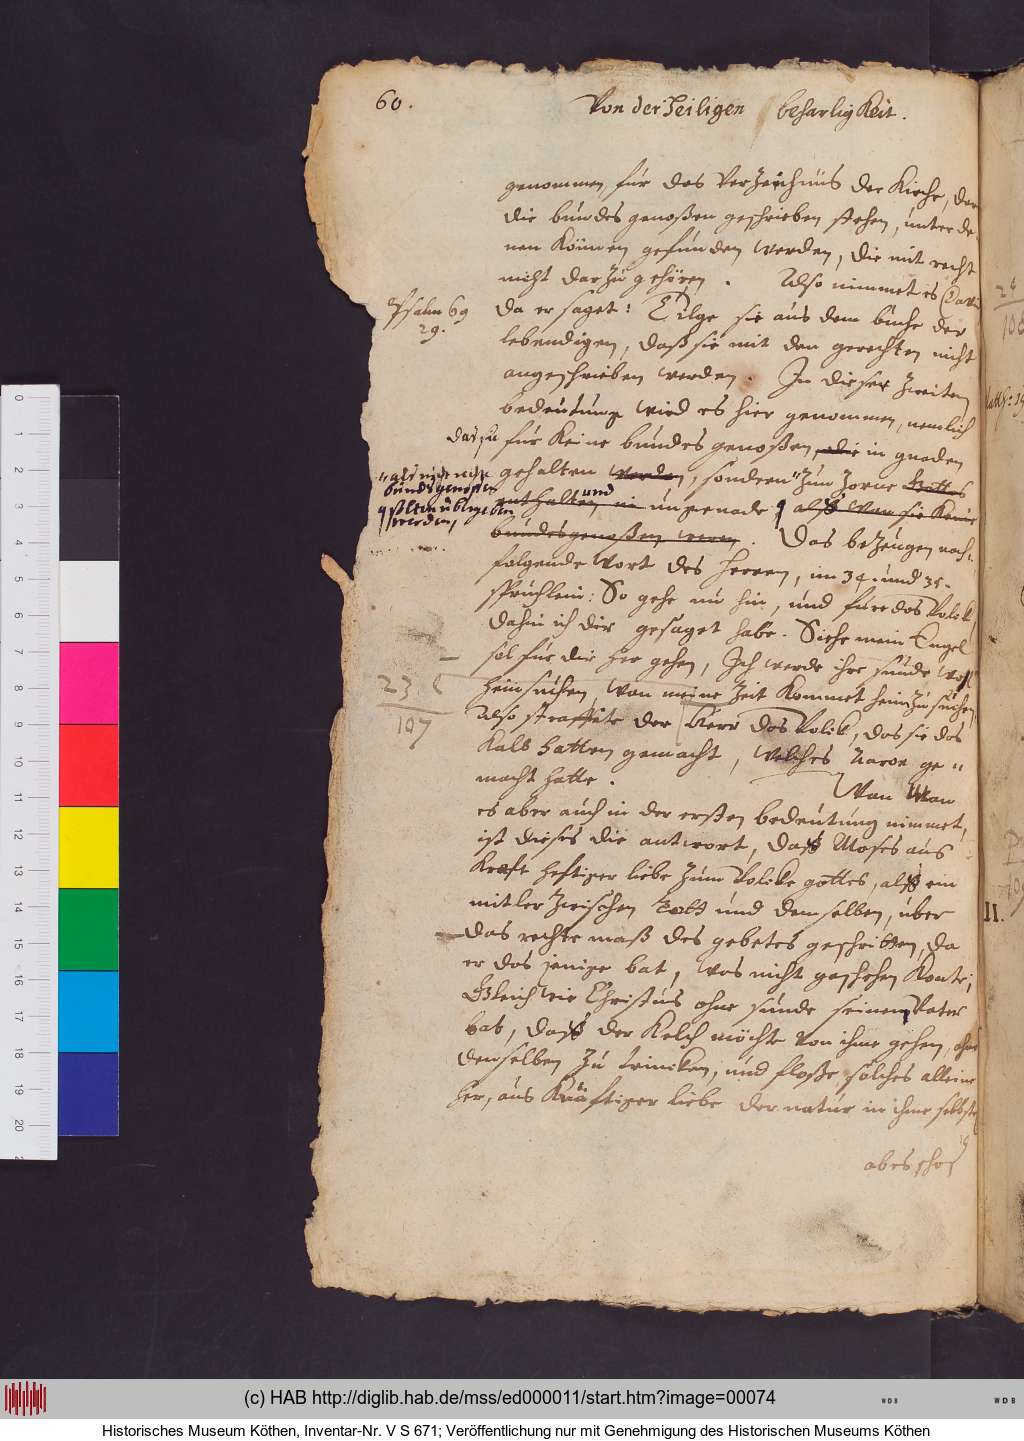 60.
Von der Heiligen beharligkeit.
genommen, für das Verzeichnüs der Kirche, der
die bundesgenoßen geschrieben stehen, unter de-
nen können gefunden werden, die mit recht
nicht darzu gehören. Also nimmet es David
Psalm 69
29.
da er saget: Tilge sie aus dem buche der
lebendigen, daß sie mit den gerechten nicht
angeschrieben werden. In dieser zweiten
bedeutunge wird es hier genommen, nemlich
das sie
für keine bundesgenoßen, die in gnaden
gehalten werden, sondern zum zorne Gottes
als nicht rechte
bundsgenoßen
solten übergeben
werden,
enthalten in und ungenade, alß wan sie keine
bundesgenoßen wern. Das bezeugen nach-
folgende wort des Herren, im 34. und 35.
sprüchlein: So gehe nu hin, und füre das Volck,
dahin ich dir gesaget habe. Siehe mein Engel
sol für dir her gehen, Ich werde ihre sünde wol
heimsuchen, wan meine Zeit kommet heimzusuchen,
23.
107
Also straffte der Herr das Volck, das sie das
Kalb hatten gemacht, welches Aaron ge-
macht hatte. Wan Man
es aber auch in der ersten bedeutung nimmet,
ist dieses die antwort, daß Moses aus
Kraft heftiger liebe zum Volcke gottes, alß ein
mitler zwischen Gott und demselben, über
das rechte maß des gebetes geschritten, da
er das jenige bat, was nicht geschehen konte;
Gleich wie Christus ohne sünde seinen Vater
bat, daß der Kelch möchte von ihme gehen, ohne
denselben zu trincken, und floße solches alleine
her, aus kräftiger liebe der natur in ihme selbst
II.
(c) HAB http://diglib.hab.de/mss/ed000011/start.htm?image=00074
WDB
WDB
Historisches Museum Köthen, Inventar-Nr. V S 671; Veröffentlichung nur mit Genehmigung des Historischen Museums Köthen